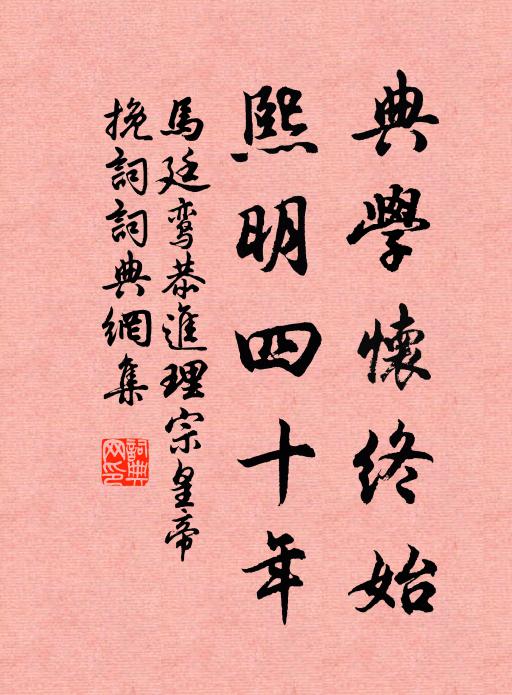 典學懷終始
熙明四十年
馬廷鸾恭進理宗皇帝
挽詞詞典網集
詞典網印